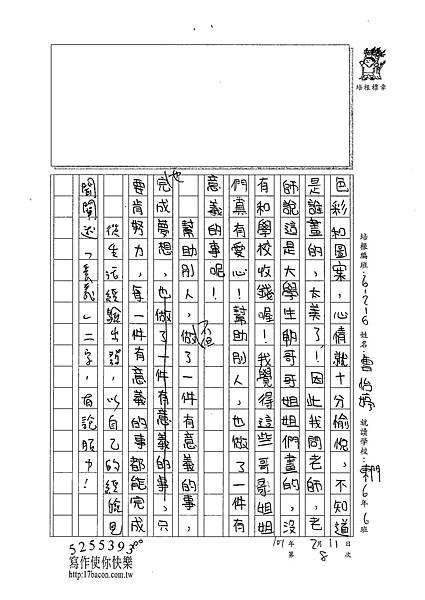 培根標章
培根編班：6J216 姓名：曹怡婷 就讀學校：東門6年6班
107年2月11日
第8次
色彩和圖案，心情就十分愉悅，不知道
是誰畫的，太美了！因此我問老師，老
師說這是大學生的哥哥姐姐們畫的，沒
有和學校收錢喔！我覺得這些哥哥姐姐
們真有愛心！幫助別人，也做了一件有
意義的事呢！
幫助別人，不但做了一件有意義的事，
完成他夢想，也做了一件有意義的事，只
要肯努力，每一件有意義的事都能完成
從生活經驗出發，以自己的經驗見
聞闡述「意義」二字，有說服力！
5255393
寫作使你快樂
http://17bacon.com.tw